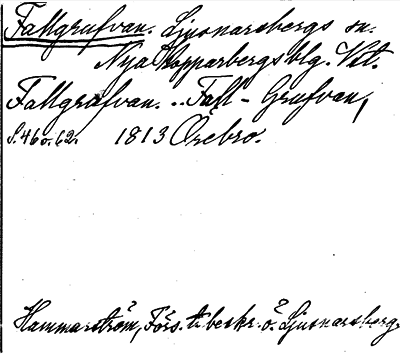 Fallgrufvan. Ljusnarsbergs sn.
Nya Kopparbergs blg. Vstl.
Fallgrafvan. .. Fall-Grufvan,
S. 46 o. 62. 1813 Örebro.
Hammarström, Förs. t. beskr. ö. Ljusnarsberg.